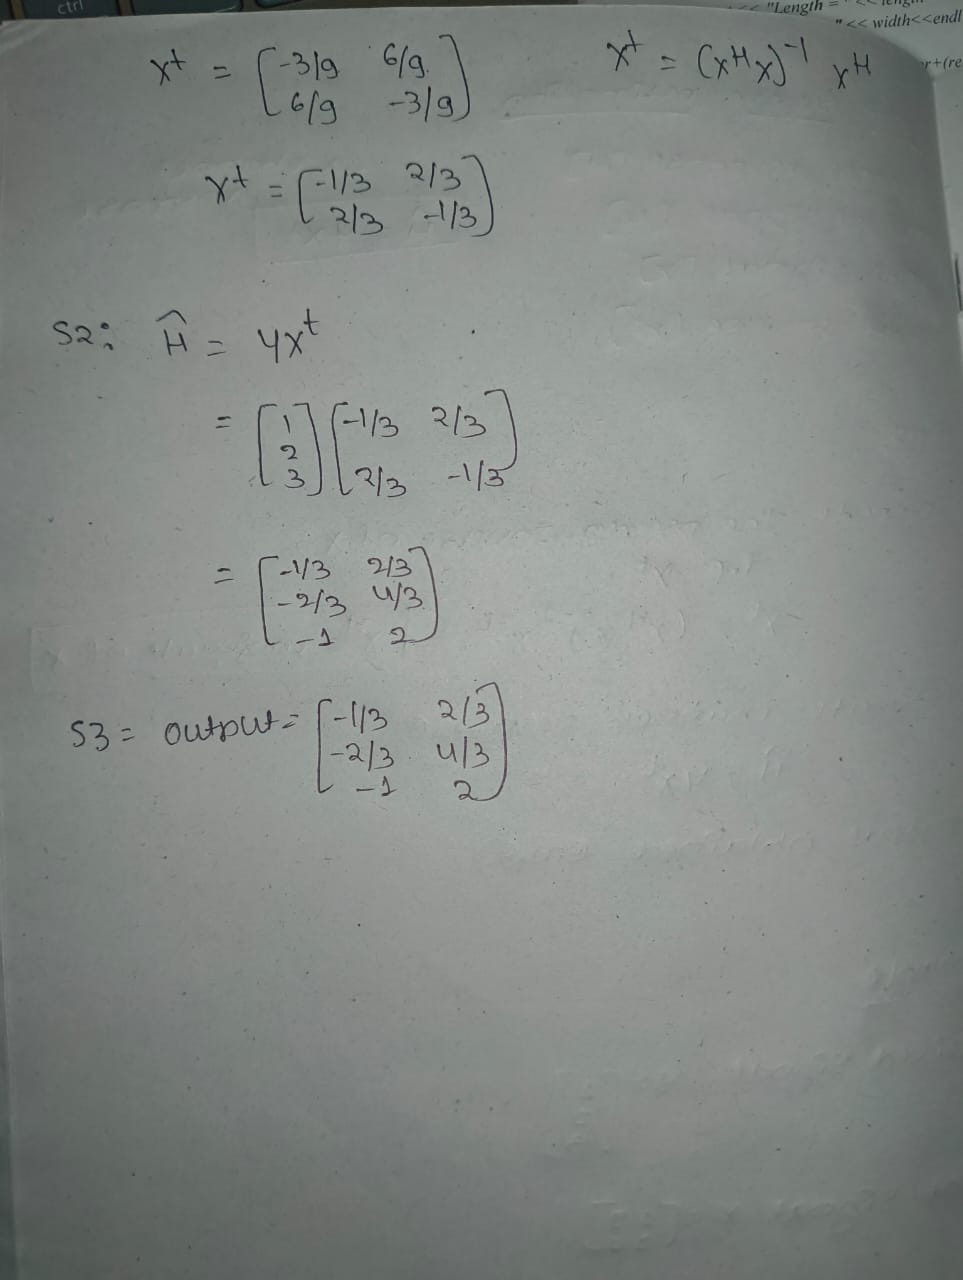 ctrl
"Length =
"<< width<<endl
x† = [-3/9 6/9
6/9 -3/9]
x† = (x^H x)^-1 x^H
x† = [-1/3 2/3
2/3 -1/3]
S2: Ĥ = Yx†
= [1
2
3] [-1/3 2/3
2/3 -1/3]
= [-1/3 2/3
-2/3 4/3
-1 2]
S3 = output = [-1/3 2/3
-2/3 4/3
-1 2]